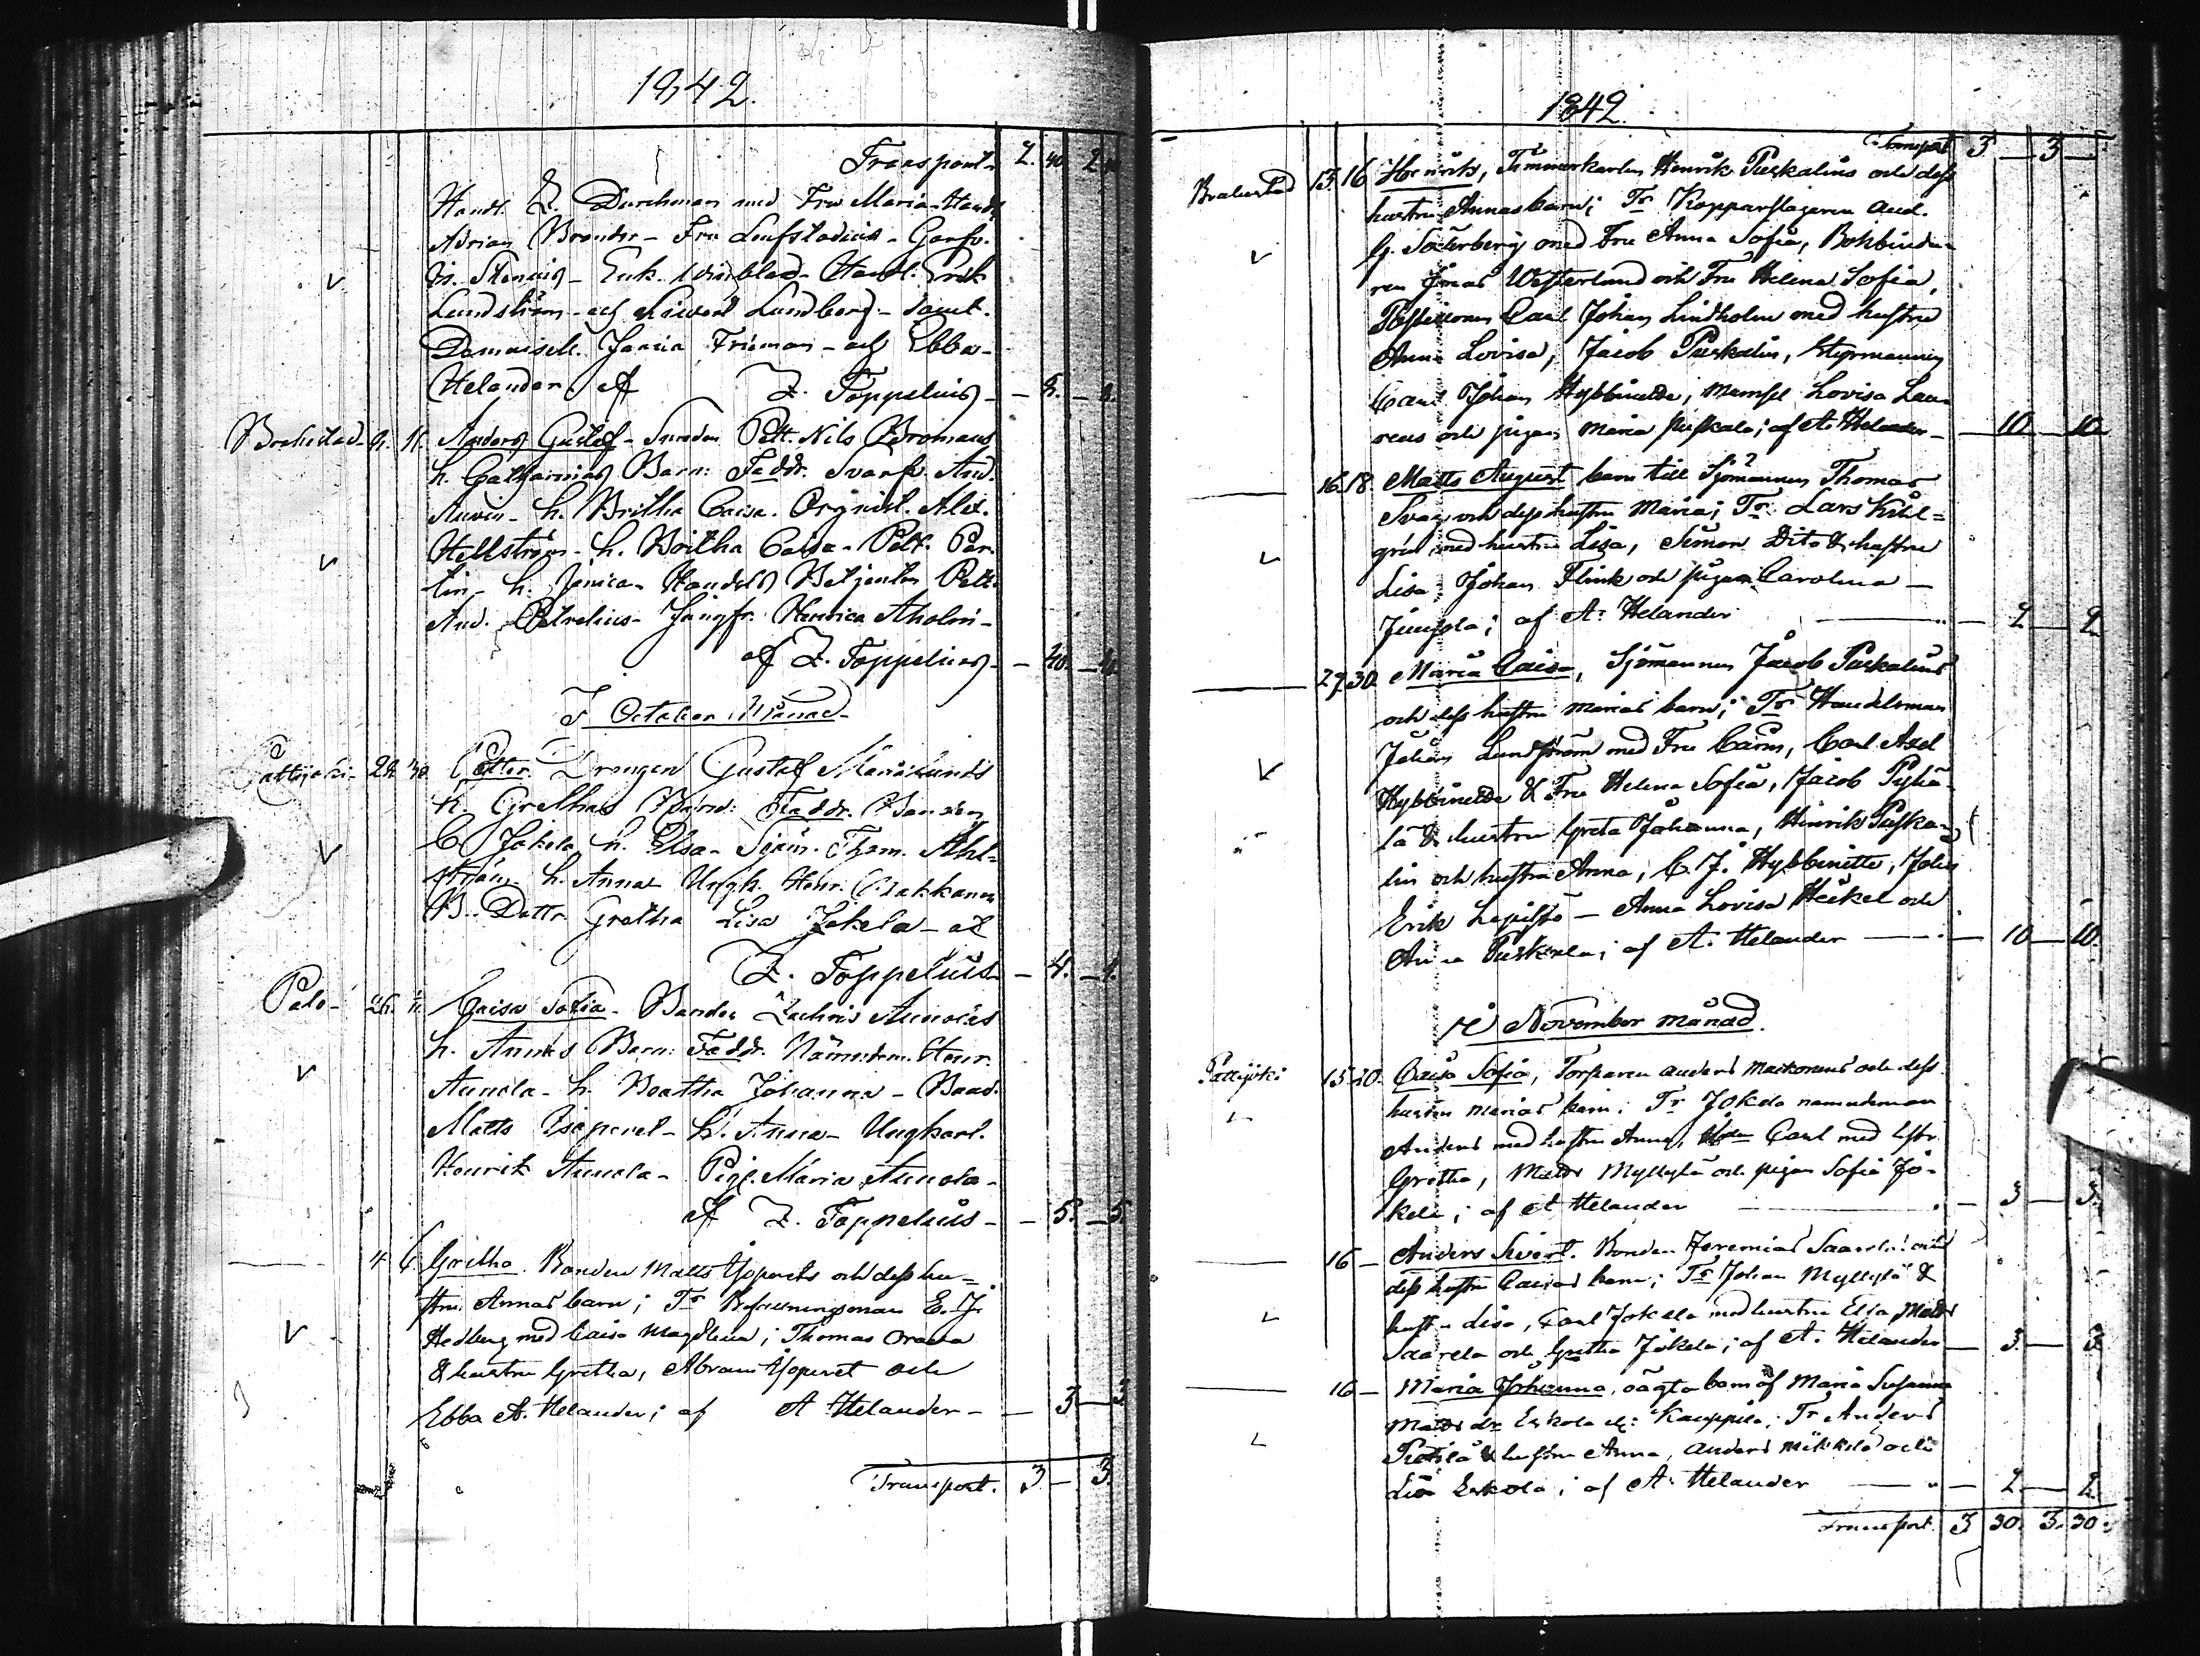 1842.
Transport. 2. 40. 2.
Handl. Z. Durchman med Fru Maria - Handl.
Adrian Brander - Fru - Garfv.
Is. Stenius - Enk. - Handl. Erik
Lundström - och Siwert Lundberg - samt.
Damaisell. Janica Frieman - och Ebba -
Helander. Af Z. Toppelius - - 8. -
Brahestad - 9. 11. Anders Gustaf - Svenden Pett. Nils Bromans
h. Catharinas Barn: Faddr. Svarfv. And.
h. Britha Caisa. Orgnist. Alex.
Hellström - h. Britha Caisa - Pett. Per
h. Janica - Handels Betjenten Pett.
And. Petrelius - Jungfr. Henrica Aholm -
af Z. Toppelius - - 40. -
I October Månad -
Pattijoki - 29. 30. Petter. Drengen Gustaf
h. Grethas Barn: Faddr. Bonden
C Jokela h. Elsa - Sjöm. Thom. Ahl-
ström h. Anna - Ungk. Henr.
B. Dottr Gretha Lisa Jokela - af
Z. Toppelius - 4. - 4.
Palo - 26. Caisa Sofia - Bonden Zachris Annolas
h. Annas Barn: Faddr. Nämndem. Henr.
Annola - h. Beatha Johanna - Bond.
Matts - h. Anna - Ungkarl.
Henrik Annola - Pig. Maria Annola -
Af Z. Toppelius - - 5. - 5.
4. 6. Gretha. Bonden Matts och dess hu=
stru Annas barn; Tr Befallningsman E. J.
Hedberg med Caisa Magdlena; Thomas Oraera
& hustru Gretha, Abram och
Ebba A. Helander; af A Helander - - 3 - 3
Transport. 3 - 3.
1842.
Transport 3 - 3 -
Brahestad 13. 16 Henrik, Timmerkarlen Henrik Puskalins och dess
hustru Annas barn; Tr Kopparslagaren And.
G. Söderberg med Fru Anna Sofia, Bokbinda-
ren Jonas Westerlund och Fru Helena Sofia,
Carl Johan Lindholm med hustru
Anna Lovisa, Jacob Puskalin, Styrmannen
Carl Johan Hybbinette, Mamsell Lovisa Lau-
reus och pigan Maria Puskala; af A. Helander - - 10 - 10
16. 18. Matts August barn till Sjömannen Thomas
Svan och dess hustru Maria; Tr Lars Kihl=
gren med hustru Lisa, Simon Dito & hustru
Lisa Johan Flink och pigan Carolina -
; af A. Helander - 2 - 2
27. 30. Maria Caisa, Sjömannen Jacob Puskalins
och dess hustru Marias barn; Tr Handelsman
Johan Lundström med Fru Carin, Carl Axel
Hybbinette & Fru Helena Sofia, Jacob Pyhä-
lä & hustru Greta Johanna, Hinrik Puska-
lin och hustru Anna, C. J. Hybbinette, John
Erik - Anna Lovisa Heikel och
Anna Puskala; af A. Helander - 10 - 10.
I November månad.
Pattijoki 15. 20. Caisa Sofia, Torparen Anders Markonens och dess
hustru Marias barn; Tr Jokela nämndeman
Anders med hustru Anna, Carl med hstr
Gretha, Matts Myllylä och pigan Sofia Jo-
kela; af A Helander - 3 - 3.
16 - Anders Sivert. Bonden Jeremias Saarela och
dess hustru Caisas barn; Tr Johan Myllylä &
hustru Lisa, Carl Jokela med hustru Elsa Matts
Saarela och Gretha Jokela; af A. Helander - 3. - 3
16 - Maria Johanna, oägta barn af Maria Susanna
Matts dr Eskola el: Kauppila; Tr Anders
Pietilä & hustru Anna, Anders Mikkela och
Lisa Eskola; af A. Helander - 2. - 2.
Transport. 3 30. 3. 30.